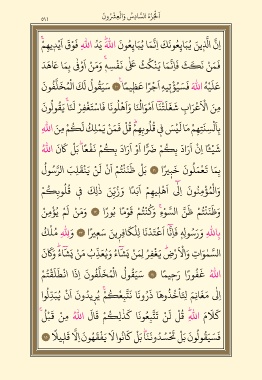 الجزء السادس والعشرون
٥١١
اِنَّ الَّذٖينَ يُبَايِعُونَكَ اِنَّمَا يُبَايِعُونَ اللّٰهَ يَدُ اللّٰهِ فَوْقَ اَيْدٖيهِمْ
فَمَنْ نَكَثَ فَاِنَّمَا يَنْكُثُ عَلٰى نَفْسِهٖ وَمَنْ اَوْفٰى بِمَا عَاهَدَ
عَلَيْهُ اللّٰهَ فَسَيُؤْتٖيهِ اَجْرًا عَظٖيمًا سَيَقُولُ لَكَ الْمُخَلَّفُونَ
مِنَ الْاَعْرَابِ شَغَلَتْنَا اَمْوَالُنَا وَاَهْلُونَا فَاسْتَغْفِرْ لَنَا يَقُولُونَ
بِاَلْسِنَتِهِمْ مَا لَيْسَ فٖى قُلُوبِهِمْ قُلْ فَمَنْ يَمْلِكُ لَكُمْ مِنَ اللّٰهِ
شَيْئًا اِنْ اَرَادَ بِكُمْ ضَرًّا اَوْ اَرَادَ بِكُمْ نَفْعًا بَلْ كَانَ اللّٰهُ
بِمَا تَعْمَلُونَ خَبٖيرًا بَلْ ظَنَنْتُمْ اَنْ لَنْ يَنْقَلِبَ الرَّسُولُ
وَالْمُؤْمِنُونَ اِلٰٓى اَهْلٖيهِمْ اَبَدًا وَزُيِّنَ ذٰلِكَ فٖى قُلُوبِكُمْ
وَظَنَنْتُمْ ظَنَّ السَّوْءِ وَكُنْتُمْ قَوْمًا بُورًا وَمَنْ لَمْ يُؤْمِنْ
بِاللّٰهِ وَرَسُولِهٖ فَاِنَّٓا اَعْتَدْنَا لِلْكَافِرٖينَ سَعٖيرًا وَلِلّٰهِ مُلْكُ
السَّمٰوَاتِ وَالْاَرْضِ يَغْفِرُ لِمَنْ يَشَٓاءُ وَيُعَذِّبُ مَنْ يَشَٓاءُ وَكَانَ
اللّٰهُ غَفُورًا رَحٖيمًا سَيَقُولُ الْمُخَلَّفُونَ اِذَا انْطَلَقْتُمْ
اِلٰى مَغَانِمَ لِتَاْخُذُوهَا ذَرُونَا نَتَّبِعْكُمْ يُرٖيدُونَ اَنْ يُبَدِّلُوا
كَلَامَ اللّٰهِ قُلْ لَنْ تَتَّبِعُونَا كَذٰلِكُمْ قَالَ اللّٰهُ مِنْ قَبْلُ
فَسَيَقُولُونَ بَلْ تَحْسُدُونَنَا بَلْ كَانُوا لَا يَفْقَهُونَ اِلَّا قَلٖيلًا